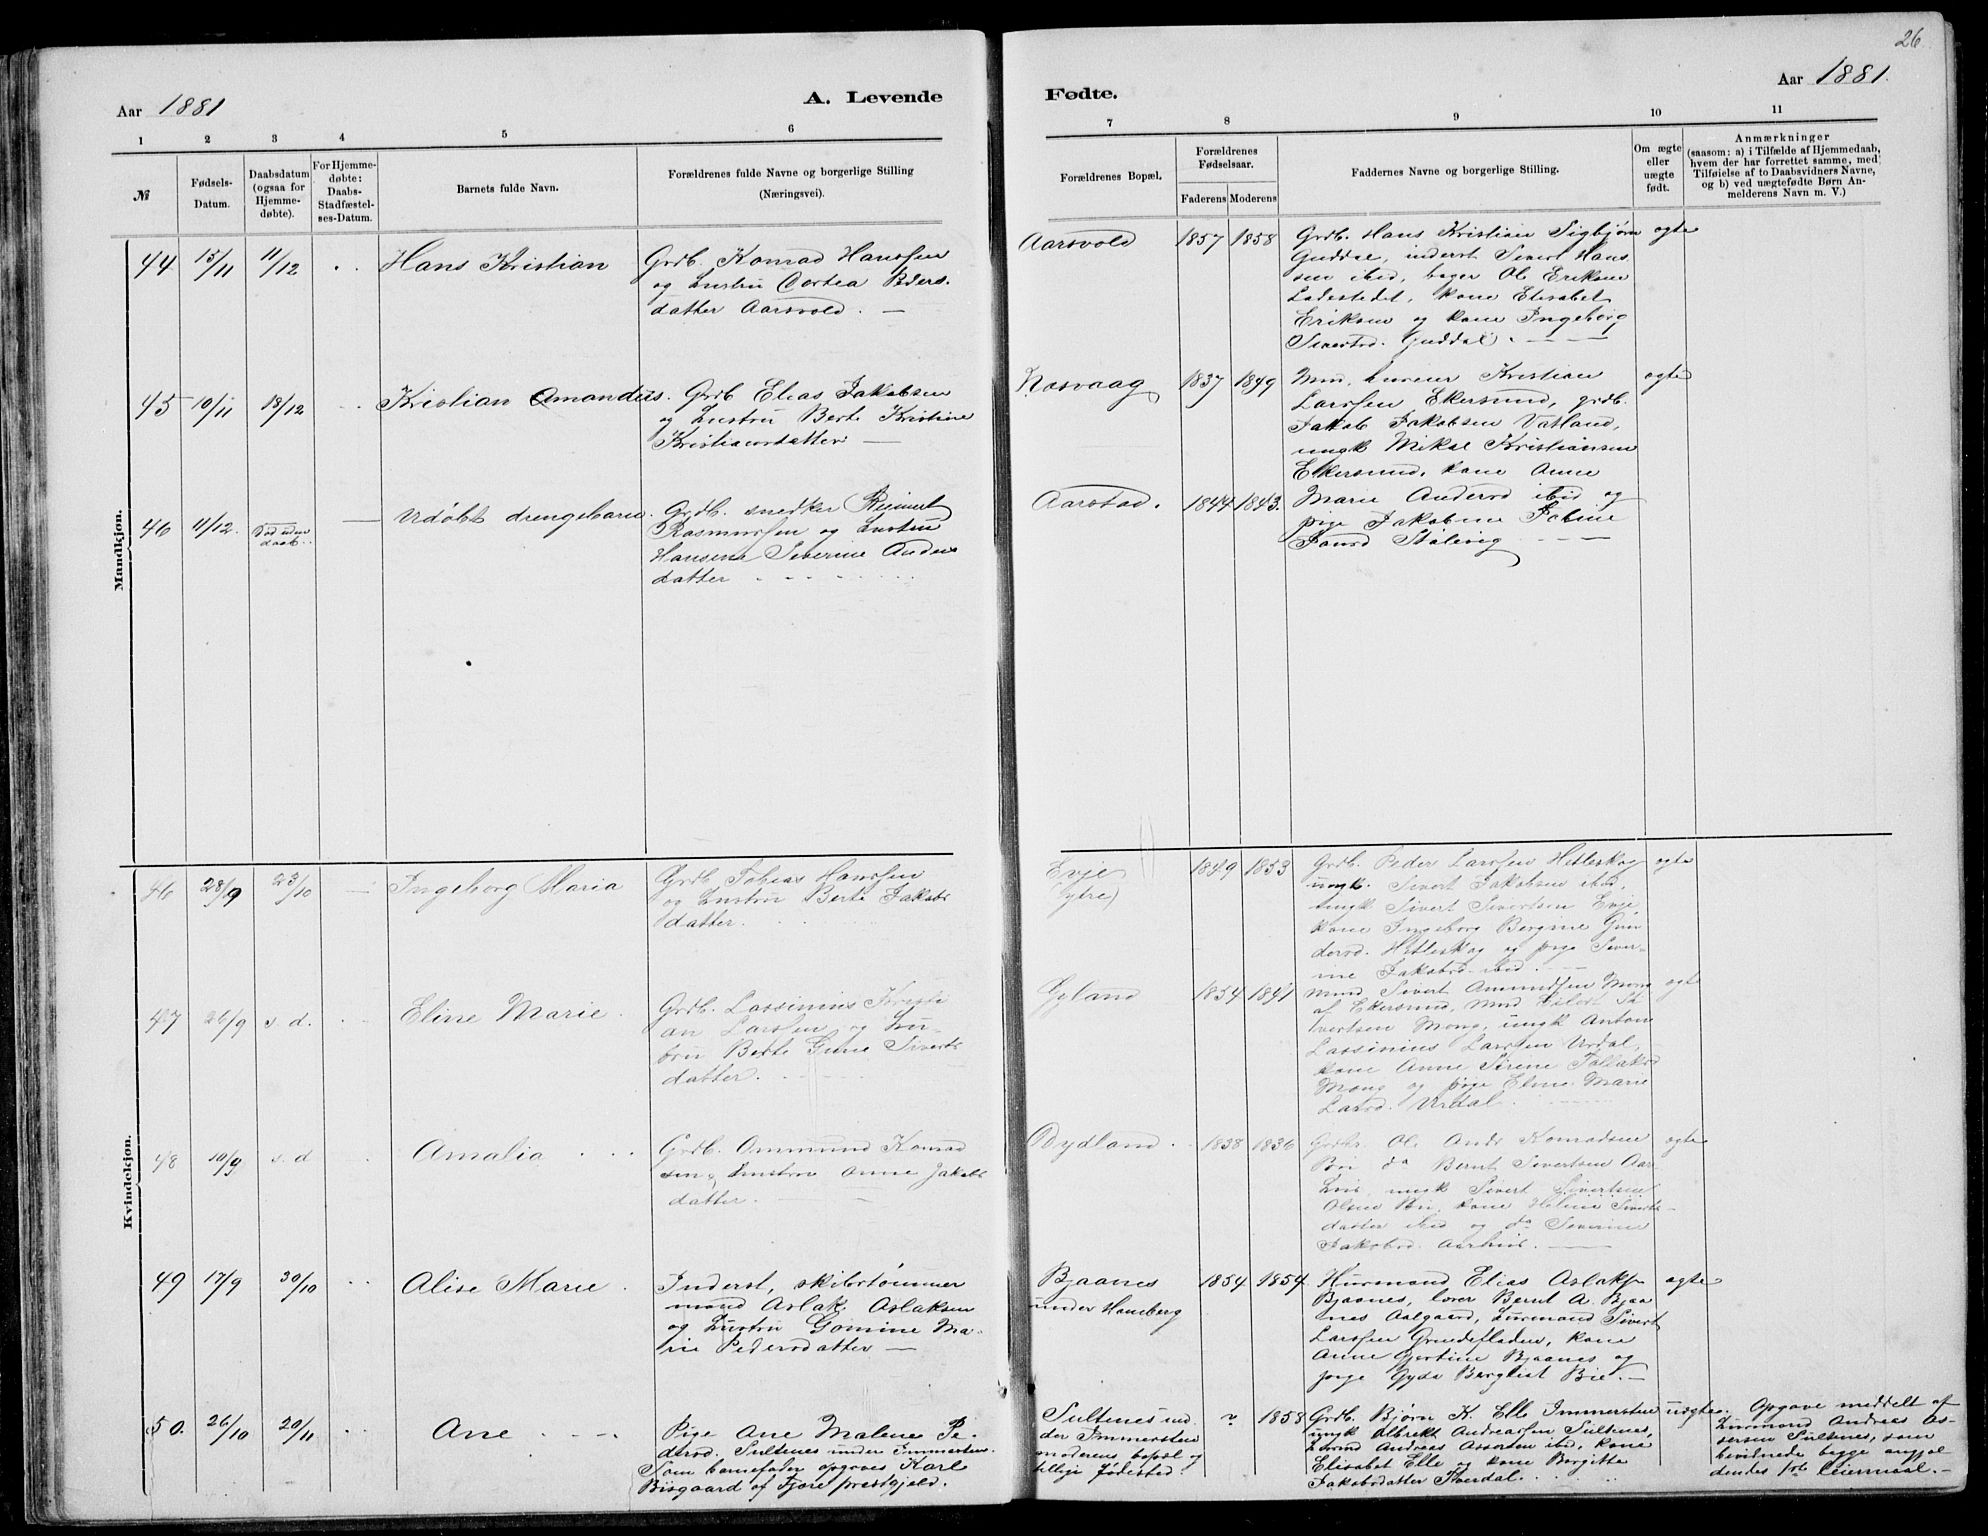 26
Aar 1881
A. Levende
Fødte.
Aar 1881.
1 2 3 4 5 6
7 8 9 10 11
№
Fødsels-
Datum.
Daabsdatum
(ogsaa for
Hjemme-
døbte).
For Hjemme-
døbte:
Daabs-
Stadfæstel-
ses-Datum.
Barnets fulde Navn.
Forældrenes fulde Navne og borgerlige Stilling
(Næringsvei).
Forældrenes Bopæl.
Forældrenes
Fødselsaar.
Faderens Moderens
Faddernes Navne og borgerlige Stilling.
Om ægte
eller
uægte
født.
Anmærkninger
(saasom: a) i Tilfælde af Hjemmedaab,
hvem der har forrettet samme, med
Tilføielse af to Daabsvidners Navne,
og b) ved uægtefødte Børn An-
melderens Navn m. V.)
Mandkjøn.
44 15/11 11/12 Hans Kristian
Grdb. Konrad Hanssen
og Hustru Peders-
datter Aarsvold.
Aarsvold 1857 1858
Grdb. Hans Kristian Sigbjørn
Guddal, inderst Sivert Hans
sen ibid, bager Ole Eriksen
Ladestedet, kone Elisabet
Eriksen og kone Ingeborg
Sivertsd. Guddal.
ægte
45 10/11 18/12 Kristian Amandus.
Grdb Elias Jakobsen
og Hustru Berte Kristine
Kristiansdatter
1837 1849
Kristian
Larssen Ekersund, grdb.
Jakob Jakobsen Vatland,
ungk Mikal Kristiansen
Ekersund, kone Anne
Marie Andersd ibid og
pige Jakobine
ægte
46 11/12. Død uden
daab.
Udøbt drengebarn.
Grdb. snedker Reginert
Rasmussen og Hustru
Hansena Severine Anders
datter
Aarstad. 1844 1843.
Kvindekjøn.
46 28/9 23/10 Ingeborg Maria
Grdb Tobias Hanssen
og Hustru Berte Jakobs
datter.
Evje
(ytre)
1849 1853
Grdb. Peder Larssen Hetleskog
ungk. Sivert Jakobsen ibid,
ungk Sivert Sivertsen Evje
kone Ingeborg Bergine Gun
dersd. Hetleskog og pige Sever-
ine Jakobsd ibid.
ægte
47 26/9 s. d. Eline Marie
Grdb. Lassinius Kristi
an Larssen og Hu-
stru Berte Gune Siverts
datter.
Gyland 1854 1841
Sivert Ommundsen Mong
af Ekersund, Si
vertsen Mong, ungk Anton
Lassinius Larssen Urdal,
kone Anne Sirene Tollaksd
Mong og pige Eline Marie
Larsd. Urdal.
ægte
48 10/9 s. d Amalia
Grdb. Ommund Konrad
sen og Hustru Anne Jakobs
datter.
Dydland. 1838 1836
Grdbr. Ole Andr Konradsen
Bø do Bernt Sivertsen Aar
ungk Sivert Sivertsen
kone Helene Siverts-
datter ibid og do Severine
Jakobsd
ægte
49 17/9 30/10 Alise Marie
Inderst, skibstømmer
mand Aslak Aslaksen
og Hustru Gomine Ma-
rie Pedersdatter
Bjaanes
under Hamberg
1854 1854
Husmand Elias Aslaks
Bjaanes, lærer Bernt A. Bjaa
nes Aalgaard, Husmand Sivert
Larssen Grundefladen, kone
Anne Gjertine Bjaanes og
pige Gyda Bergliot Bie.
ægte
50. 26/10 20/11 Ane
Pige Ane Malene Pe-
dersd. Sultenes under Immersten.
Som barnefader opgaves Karl
Bisgaard af Fjære prestegjeld.
Sultenes un
der Immersten
moderens bopæl og
tillige fødested.
? 1858
Grdb. Bjørn K. Elle Immersten
ungk Albrekt Andreassen Sultenes,
Andreas Assersen ibid, kone
Elisabet Elle og kone Borgitte
Jakobsdatter
uægte.
Opgave meddelt af
Husmand Andreas As-
sersen Sultenes, som
bevidnede begge angjæl
dendes 1ste leiermaal.